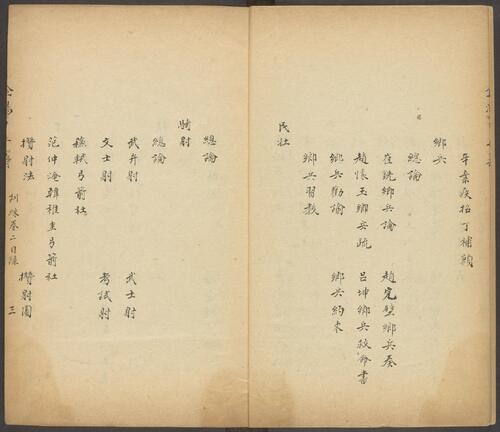 辛棄疾招丁補額
鄉兵
總論
崔銑鄉兵論
趙完璧鄉兵奏
趙懷玉鄉兵疏
呂坤鄉兵救命書
鄉兵勸諭
鄉兵約束
鄉兵習教
民壯
總論
騎射
總論
武弁射
武士射
文士射
考試射
蘇軾弓箭社
范仲淹韓稚圭弓箭社
攢射法
攢射圖
訓練卷二目錄
三